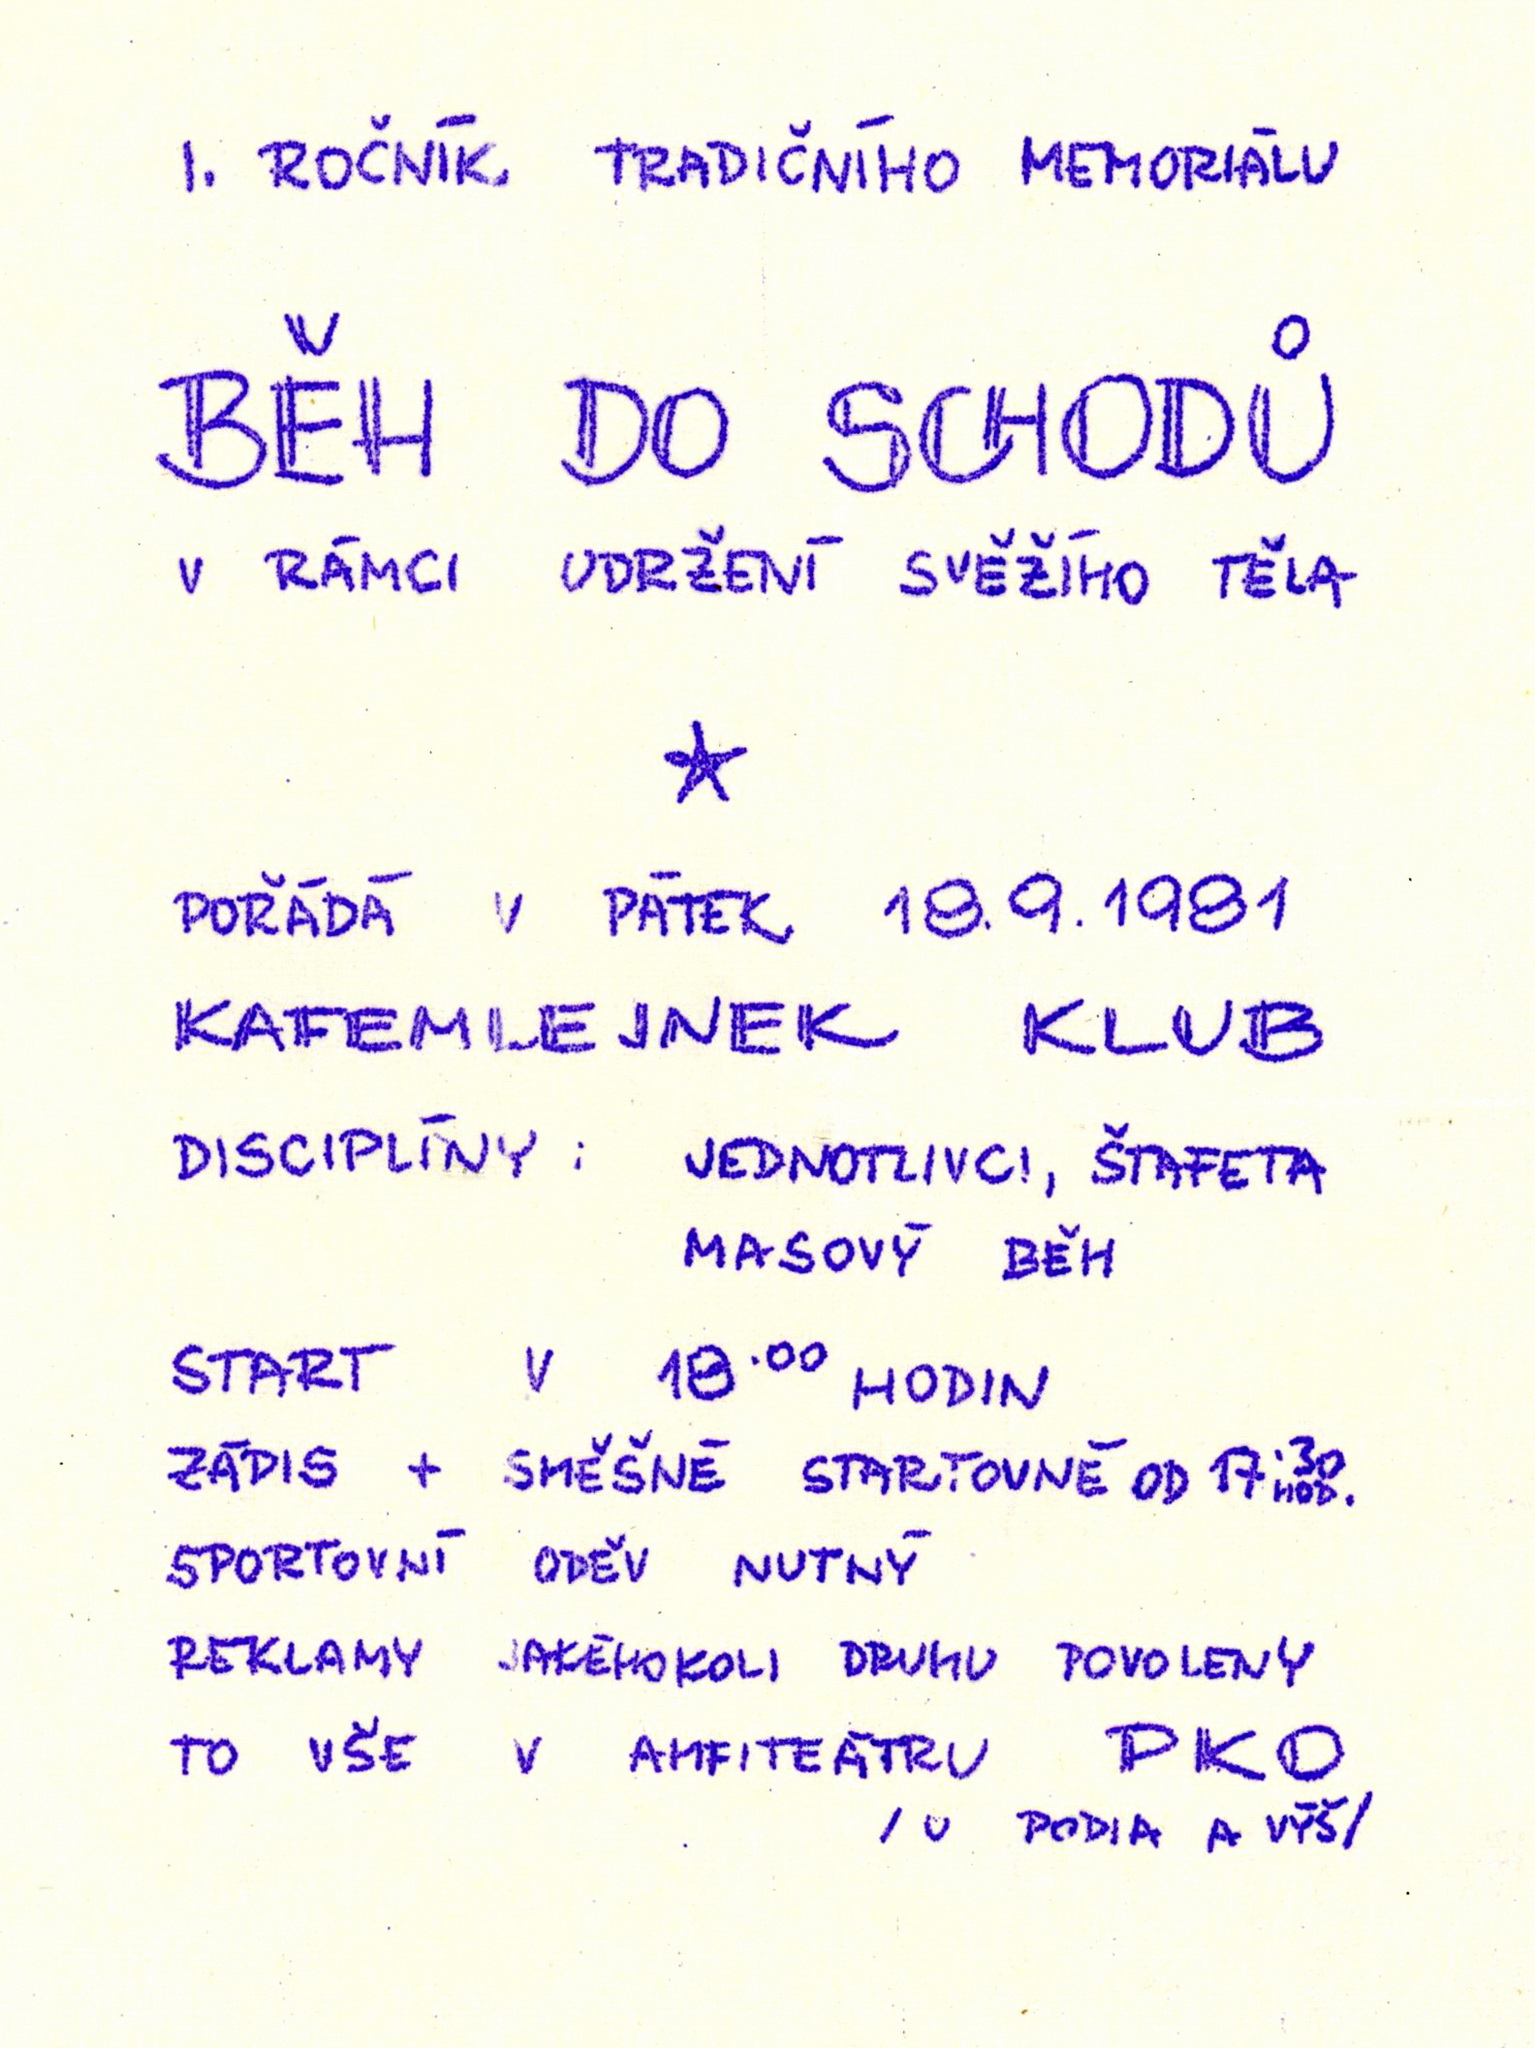 1. ROČNÍK TRADIČNÍHO MEMORIÁLU
BĚH DO SCHODŮ
V RÁMCI UDRŽENÍ SVĚŽÍHO TĚLA
POŘÁDÁ V PÁTEK 18.9.1981
KAFEMLEJNEK KLUB
DISCIPLÍNY: JEDNOTLIVCI, ŠTAFETA
MASOVÝ BĚH
START V 18.00 HODIN
ZÁPIS + SMĚŠNÉ STARTOVNÉ OD 17:30 HOD.
SPORTOVNÍ ODĚV NUTNÝ
REKLAMY JAKÉHOKOLI DRUHU POVOLENY
TO VŠE V AMFITEÁTRU PKO
/ U PODIA A VÝŠ/